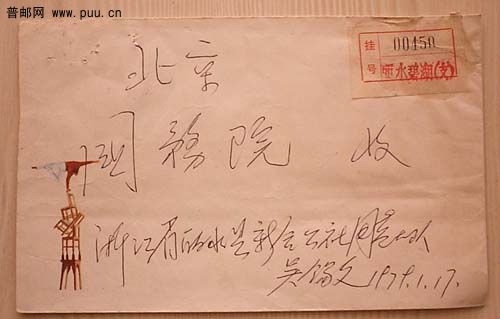 普邮网 www.puu.cn
挂号 00450
丽水碧湖(支)
北京
国務院 收
浙江省丽水县新合公社周大队
吴锡文 1979.1.17.